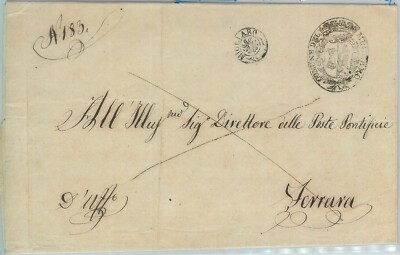 N 183.
MIGLIARO
All'Illus.mo Sig.r Direttore delle Poste Pontificie
D'Uffo
Ferrara